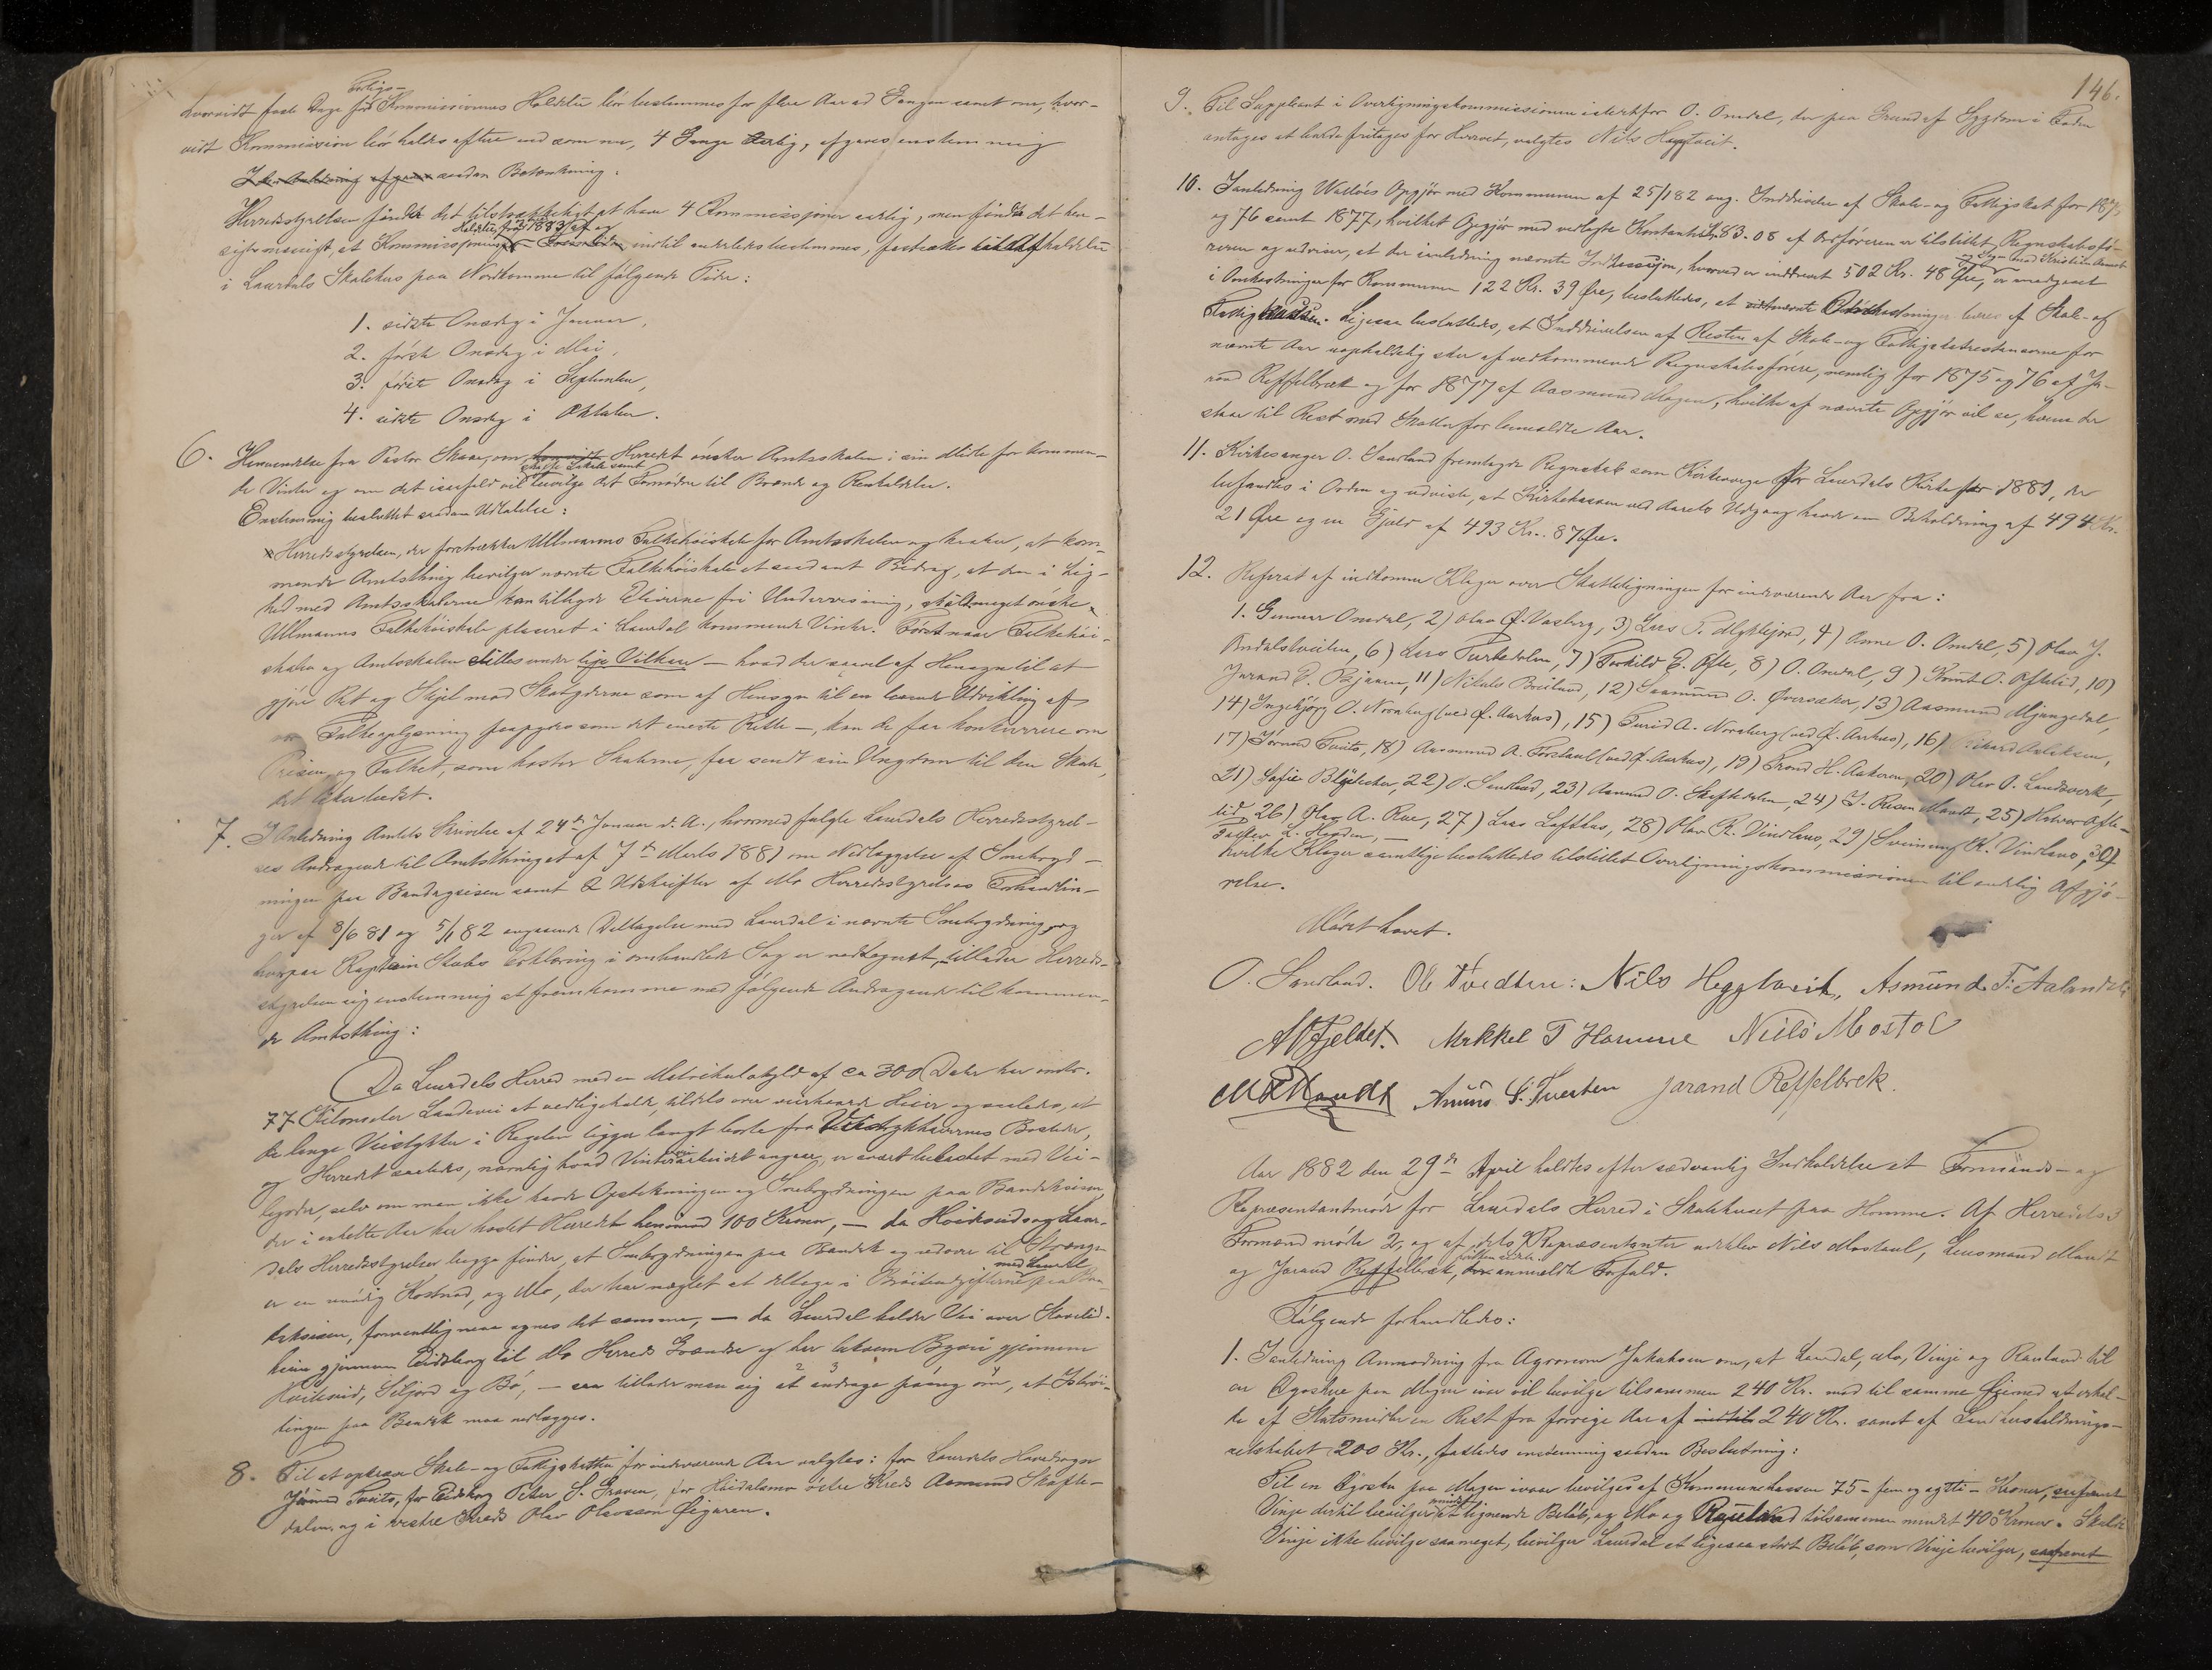 Fattigs-
hvorvidt faste Dage for Kommissionens Holdelse bör bestemmes for flere Aar ad Gangen samt om, hvor-
vidt Kommission bör holdes oftere end som nu, 4 Gange aarlig, afgaves enstemmig
saadan Betænkning:
Herredsstyrelsen finder det tilstrækkeligt at have 4 Kommissjoner aarlig, men finder det hen-
sigtsmæssigt, at Kommissjonens Holdelse fra 1883 af og indtil anderledes bestemmes, fastsættes til Afholdelse
i Laurdals Skolehus paa Nordhomme til fölgende Tider:
1. sidste Onsdag i Januar,
2. förste Onsdag i Mai,
3. förste Onsdag i September,
4. sidste Onsdag i Oktober.
6. Henvendelse fra Pastor Skaar, om Herredet önsker Amtsskolen i sin Midte for kommen-
de Vinter og om det isaafald vil skaffe Lokale samt bevilge det Fornödne til Brænde og Renholdelse.
Enstemmig besluttet saadan Udtalelse:
Herredsstyrelsen, der foretrækker Ullmanns Folkehöiskole for Amtsskolen og ønsker, at kom-
mende Amtsthing bevilger nævnte Folkehöiskole et saadant Bidrag, at den i Lig-
hed med Amtsskolerne kan tilbyde Eleverne fri Undervisning, skulde meget önske
Ullmanns Folkehöiskole placeret i Laurdal kommende Vinter. Först naar Folkehöi-
skolen og Amtsskolen stilles under lige Vilkaar — hvad der saavel af Hensyn til at
gjöre Ret og Skjel mod Skatyderne som af Hensyn til en Udvikling af
Folkeoplysning paapydes som det eneste Rette —, kan de faa konkurrere om
Prisen, og Folket, som koster Skolerne, faa sendt sin Ungdom til den Skole,
det liker bedst.
7. I Anledning Amtets Skrivelse af 24de Januar d. A., hvormed fulgte Laurdals Herredsstyrel-
ses Andragende til Amtsthinget af 7de Marts 1881 om Nedlæggelse af Snebryd-
ningen paa Bandaksisen samt 2 Udskrifter af Mo Herredsstyrelses Forhandlin-
ger af 3/6 81 og 5/1 82 angaaende Deltagelse med Laurdal i nævnte Snebrydning, og
hvorpaa Kaptein Skabo Erklæring i omhandlede Sag er vedtegnet, tillader Herreds-
styrelsen sig enstemmig at fremkomme med fölgende Andragende til kommen-
de Amtsthing:
Da Laurdals Herred med en Matrikulskyld af ca 300 Daler har omtr.
77 Kilometer Landevei at vedligeholde, tildels over veirhaarde Heier og saaledes, at
de lange Veistykker i Regelen ligger langt borte fra Bosteder,
og Herredet saaledes, navnlig hvad Vinterveiarbeidet angaar, er svært belastet med Vei-
bygder, selv om man ikke havde Opstikningen og Snebrydningen paa Bandaksisen,
der i enkelte Aar har kostet Herredet henimod 100 Kroner, — da Hvideseids og Laur-
dals Herredsstyrelser begge finder, at Snebrydningen paa Bandak og nedover til Strænge
er en unödig Kostnad, og Mo, der har nægtet at deltage i Bröiteudgifterne med Laurdal paa Ban-
daksisen, formentligen synes det samme, — da Laurdal holder Vei over
heien gjennem Eidsborg til Mo Herreds Grændse og har bekvem Byvei gjennem
Hvideseid, Seljord og Bö, — saa tillader man sig at andrage paany om, at Isbröi-
tingen paa Bandak maa nedlægges.
8. Til at opkræve Skole- og Fattigskatten for indeværende Aar valgtes: for Laurdals Hovedsogn
Jörund Tveito, for Eidsborg Peter S. Graver, for Höidalsmo östre Kreds Aamund Skafte-
dalen, og i vestre Kreds Olav Olavsson Öigaren.
146.
9. Til Suppleant i Overligningskommissionen istedetfor O. Omdal, der paa Grund af Sygdom i Foden
antages at burde fritages for Hvervet, valgtes Nils Heggtveit.
10. I anledning Wallöes Opgjör med Kommunen af 25/1 82 ang. Inddrivelse af Skole- og Fattigskat for 1875
og 76 samt 1877, hvilket Opgjör med vedlagte Kontanter Kr. 83.08 af Ordföreren er tilstillet Regnskabsfö-
reren og udviser, at der i anledning nævnte , hvorved er inddrevet 502 Kr. 48 Öre, er medgaaet
i Omkostninger for Kommunen 122 Kr. 39 Öre, besluttedes, at sidstnævnte Omkostninger bæres af Skole- og
Fattigkassen. Ligesaa besluttedes, at Inddrivelsen af Resten af Skole- og Fattigskatrestancerne for
nævnte Aar uopholdelig sker af vedkommende Regnskabsförere, nemlig for 1875 og 76 af Ja-
rand Reffelbræk og for 1877 af Aasmund Mogen, hvilke af nævnte Opgjör vil se, hvem der
staar til Rest med Skatter for bemeldte Aar.
11. Kirkesanger O. Sandland fremlagde Regnskab som Kirkeverge for Laurdals Kirke for 1881, der
befandtes i Orden og udviste, at Kirkekassen ved Aarets Udgang havde en Beholdning af 494 Kr.
21 Öre og en Gjæld af 493 Kr. 87 Öre.
12. Referat af indkomne Klager over Skatteligningen for indeværende Aar fra:
1. Gunnar Omdal, 2) Olav Ø. Vasberg, 3) Lars T. Myklejord, 4) Anne O. Omdal, 5) Olav J.
Andalstveiten, 6) Lars Turkedalen, 7) Torkild E. Ofte, 8) O. Omdal, 9) Knut O. Oftelid, 10)
Jarand T. Bjaaen, 11) Nikuls Breiland, 12) Saamund O. Översaker, 13) Aasmund Mjungedal,
14) Ingebjörg O. Nordberg (ved Ø. Aarhus), 15) Turid A. Nordberg (ved Ø. Aarhus), 16) ,
17) Jörund Tveito, 18) Aasmund A. Forstaul (ved Ø. Aarhus), 19) Trond H. Aakeren, 20) Olav O. Landsverk,
21) Sofie Blyttecker, 22) O. Sandland, 23) Aanund O. Skaftedalen, 24) J. Reisen Mandt, 25) Halvor Ofte-
lid 26) Olav A. Rue, 27) Lars Lofthus, 28) Olav R. Vindlaus, 29) Sveinung K. Vindlaus, 30)
hvilke Klager samtlige besluttedes tilstillet Overligningskommissionen til endelig Afgjö-
relse.
Mödet hævet.
O. Sandland. Ole Tvedten: Nils Heggtveit, Asmund T. Aalandslid
A Fjeldet. Mikkel T Homme Nils Mostöl
M Mandt Anund S. Tveiten Jarand Reffelbrek.
Aar 1882 den 29de April holdtes efter sædvanlig Indkaldelse et Formands- og
Repræsentantmöde for Laurdals Herred i Skolehuset paa Homme. Af Herredets 3
Formænd mödte 2, og af dets 9 Repræsentanter udeblev Nils Mostaul, Lensmand Mandt
og Jarand Reffelbræk, anmeldt Forfald.
Fölgende forhandledes:
1. I anledning Anmodning fra Agronom Jakobsen om, at Laurdal, Mo, Vinje og Rauland til
en Ysteri paa Mogen iaar vil bevilge tilsammen 240 Kr. mod til samme Öiemed at erhol-
de af Statsmidler en Rest fra forrige Aar af 240 Kr. samt af Landhusholdnings-
selskabet 200 Kr., fattedes enstemmig saadan Beslutning:
Til en Ysteri paa Mogen iaar bevilges af Kommunekassen 75 - fem og sytti - Kroner, saafremt
Vinje dertil bevilger mindst et lignende Belöb, og Mo og Rauland tilsammen mindst 40 Kroner. Skulde
Vinje ikke bevilge saameget, bevilger Laurdal et ligesaa stort Belöb, som Vinje bevilger, saafremt